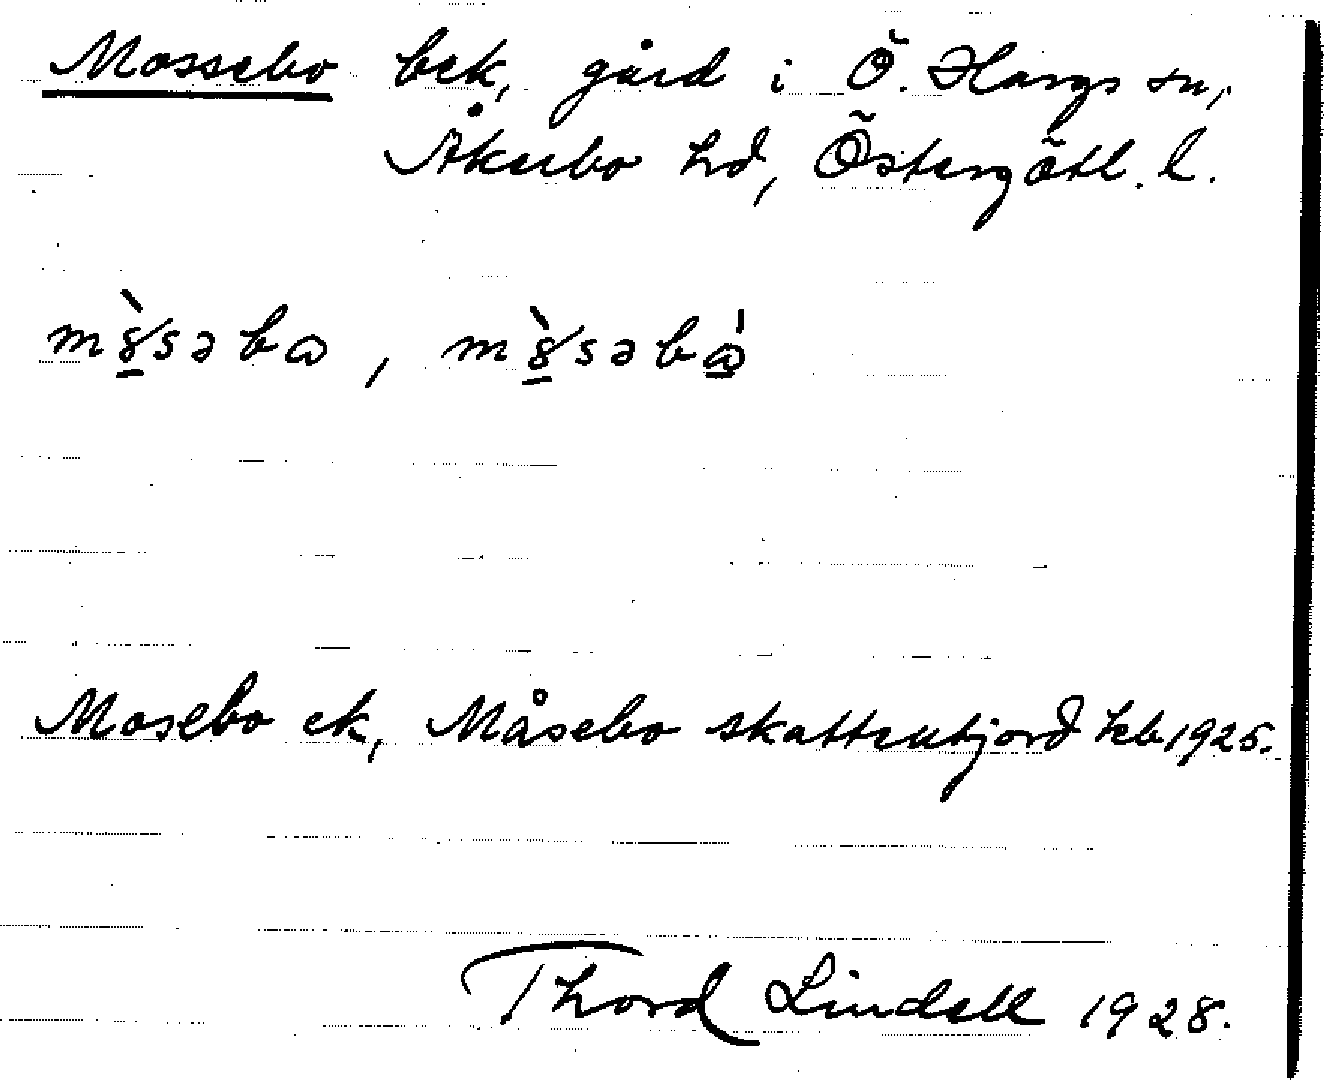 Mossebo bek, gård i Ö. Hargs sn,
Åkerbo hd, Östergötl. l.
Mosebo ek, Måsebo skatteutjord kb 1925.
Thord Lindell 1928.